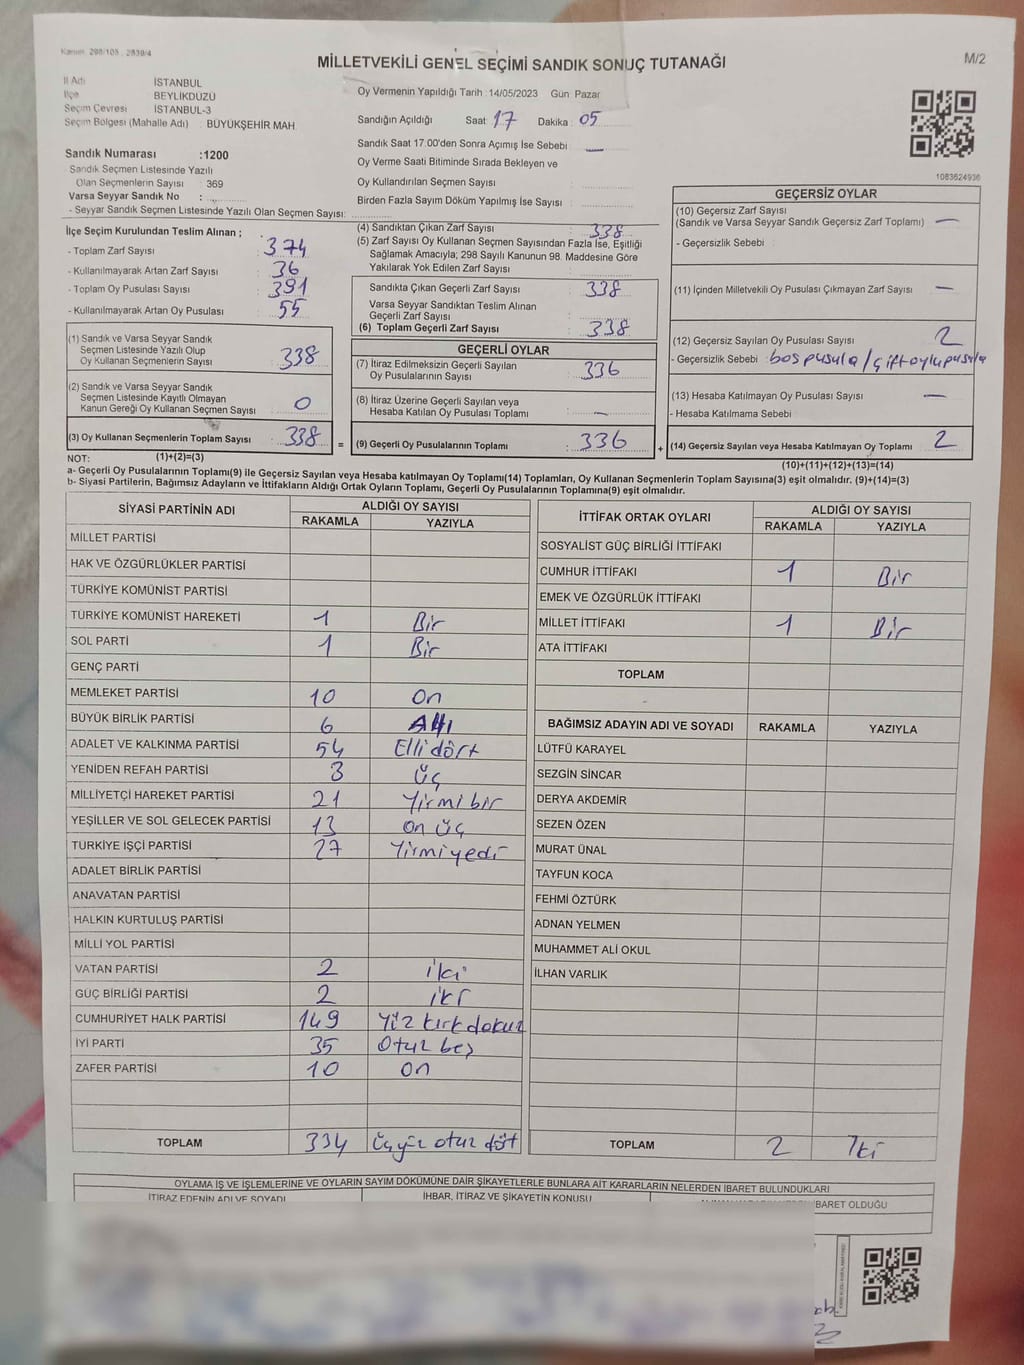 Kanun: 298/105 , 2839/4
MİLLETVEKİLİ GENEL SEÇİMİ SANDIK SONUÇ TUTANAĞI
M/2
İl Adı : İSTANBUL
İlçe : BEYLİKDÜZÜ
Seçim Çevresi : İSTANBUL-3
Seçim Bölgesi (Mahalle Adı) : BÜYÜKŞEHİR MAH.
Sandık Numarası :1200
Sandık Seçmen Listesinde Yazılı
Olan Seçmenlerin Sayısı : 369
Varsa Seyyar Sandık No :
- Seyyar Sandık Seçmen Listesinde Yazılı Olan Seçmen Sayısı:
Oy Vermenin Yapıldığı Tarih :14/05/2023 Gün: Pazar
Sandığın Açıldığı Saat : 17 Dakika : 05
Sandık Saat 17.00'den Sonra Açılmış İse Sebebi : —
Oy Verme Saati Bitiminde Sırada Bekleyen ve
Oy Kullandırılan Seçmen Sayısı :
Birden Fazla Sayım Döküm Yapılmış İse Sayısı :
1083624936
İlçe Seçim Kurulundan Teslim Alınan ;
- Toplam Zarf Sayısı : 374
- Kullanılmayarak Artan Zarf Sayısı : 36
- Toplam Oy Pusulası Sayısı : 391
- Kullanılmayarak Artan Oy Pusulası : 55
(1) Sandık ve Varsa Seyyar Sandık
Seçmen Listesinde Yazılı Olup
Oy Kullanan Seçmenlerin Sayısı : 338
(2) Sandık ve Varsa Seyyar Sandık
Seçmen Listesinde Kayıtlı Olmayan
Kanun Gereği Oy Kullanan Seçmen Sayısı : 0
(3) Oy Kullanan Seçmenlerin Toplam Sayısı : 338
(4) Sandıktan Çıkan Zarf Sayısı : 338
(5) Zarf Sayısı Oy Kullanan Seçmen Sayısından Fazla İse, Eşitliği
Sağlamak Amacıyla; 298 Sayılı Kanunun 98. Maddesine Göre
Yakılarak Yok Edilen Zarf Sayısı :
Sandıkta Çıkan Geçerli Zarf Sayısı : 338
Varsa Seyyar Sandıktan Teslim Alınan
Geçerli Zarf Sayısı :
(6) Toplam Geçerli Zarf Sayısı : 338
GEÇERLİ OYLAR
(7) İtiraz Edilmeksizin Geçerli Sayılan
Oy Pusulalarının Sayısı : 336
(8) İtiraz Üzerine Geçerli Sayılan veya
Hesaba Katılan Oy Pusulası Toplamı : —
= (9) Geçerli Oy Pusulalarının Toplamı : 336
GEÇERSİZ OYLAR
(10) Geçersiz Zarf Sayısı
(Sandık ve Varsa Seyyar Sandık Geçersiz Zarf Toplamı) : —
- Geçersizlik Sebebi :
(11) İçinden Milletvekili Oy Pusulası Çıkmayan Zarf Sayısı : —
(12) Geçersiz Sayılan Oy Pusulası Sayısı : 2
- Geçersizlik Sebebi : boş pusula / çift oylu pusula
(13) Hesaba Katılmayan Oy Pusulası Sayısı : —
- Hesaba Katılmama Sebebi :
+ (14) Geçersiz Sayılan veya Hesaba Katılmayan Oy Toplamı : 2
NOT: (1)+(2)=(3)
(10)+(11)+(12)+(13)=(14)
a- Geçerli Oy Pusulalarının Toplamı(9) ile Geçersiz Sayılan veya Hesaba katılmayan Oy Toplamı(14) Toplamları, Oy Kullanan Seçmenlerin Toplam Sayısına(3) eşit olmalıdır. (9)+(14)=(3)
b- Siyasi Partilerin, Bağımsız Adayların ve İttifakların Aldığı Ortak Oyların Toplamı, Geçerli Oy Pusulalarının Toplamına(9) eşit olmalıdır.
SİYASİ PARTİNİN ADI ALDIĞI OY SAYISI
RAKAMLA YAZIYLA
MİLLET PARTİSİ
HAK VE ÖZGÜRLÜKLER PARTİSİ
TÜRKİYE KOMÜNİST PARTİSİ
TÜRKİYE KOMÜNİST HAREKETİ 1 Bir
SOL PARTİ 1 Bir
GENÇ PARTİ
MEMLEKET PARTİSİ 10 On
BÜYÜK BİRLİK PARTİSİ 6 Altı
ADALET VE KALKINMA PARTİSİ 54 Elli dört
YENİDEN REFAH PARTİSİ 3 Üç
MİLLİYETÇİ HAREKET PARTİSİ 21 Yirmi bir
YEŞİLLER VE SOL GELECEK PARTİSİ 13 on üç
TÜRKİYE İŞÇİ PARTİSİ 27 Yirmi yedi
ADALET BİRLİK PARTİSİ
ANAVATAN PARTİSİ
HALKIN KURTULUŞ PARTİSİ
MİLLİ YOL PARTİSİ
VATAN PARTİSİ 2 iki
GÜÇ BİRLİĞİ PARTİSİ 2 iki
CUMHURİYET HALK PARTİSİ 149 Yüz kırk dokuz
İYİ PARTİ 35 Otuz beş
ZAFER PARTİSİ 10 on
TOPLAM 334 Üçyüz otuz döt
İTTİFAK ORTAK OYLARI ALDIĞI OY SAYISI
RAKAMLA YAZIYLA
SOSYALİST GÜÇ BİRLİĞİ İTTİFAKI
CUMHUR İTTİFAKI 1 Bir
EMEK VE ÖZGÜRLÜK İTTİFAKI
MİLLET İTTİFAKI 1 Bir
ATA İTTİFAKI
TOPLAM
BAĞIMSIZ ADAYIN ADI VE SOYADI RAKAMLA YAZIYLA
LÜTFÜ KARAYEL
SEZGİN SİNCAR
DERYA AKDEMİR
SEZEN ÖZEN
MURAT ÜNAL
TAYFUN KOCA
FEHMİ ÖZTÜRK
ADNAN YELMEN
MUHAMMET ALİ OKUL
İLHAN VARLIK
TOPLAM 2 İki
OYLAMA İŞ VE İŞLEMLERİNE VE OYLARIN SAYIM DÖKÜMÜNE DAİR ŞİKAYETLERLE BUNLARA AİT KARARLARIN NELERDEN İBARET BULUNDUKLARI
İTİRAZ EDENİN ADI VE SOYADI İHBAR, İTİRAZ VE ŞİKAYETİN KONUSU İBARET OLDUĞU